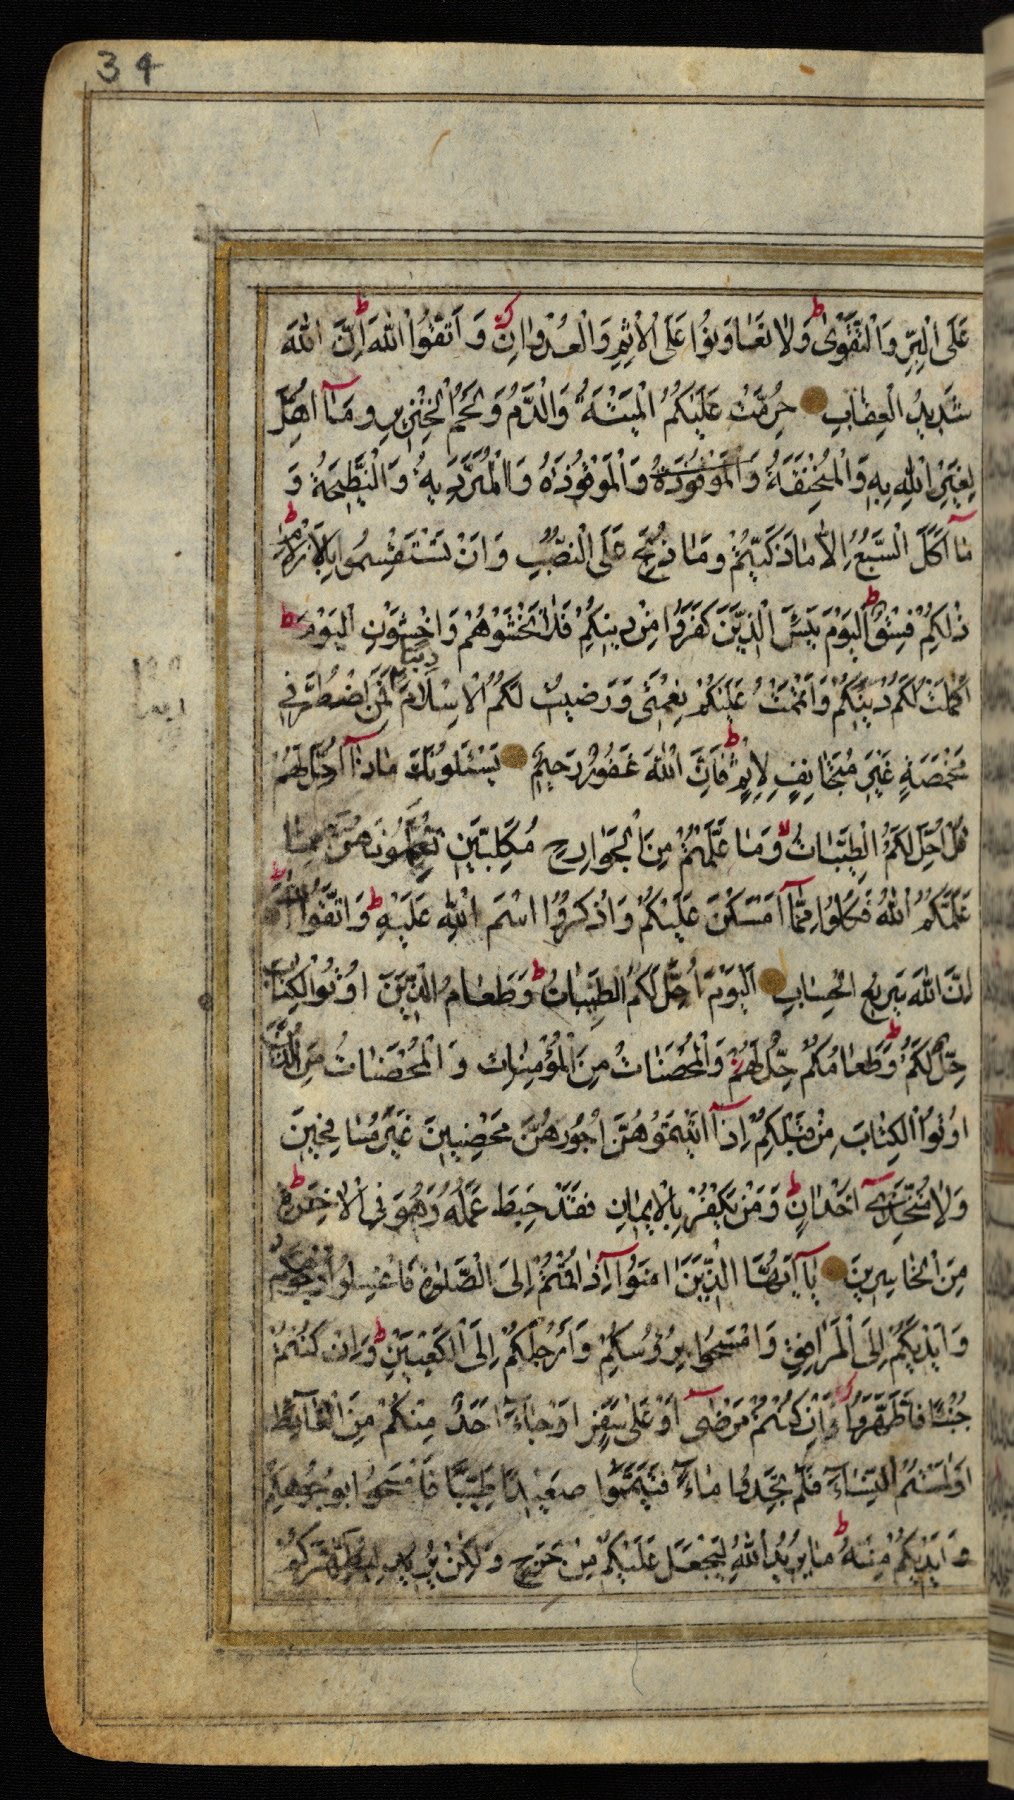 34
عَلَى الْبِرِّ وَالتَّقْوٰى ط وَلَا تَعَاوَنُوا عَلَى الْاِثْمِ وَالْعُدْوَانِ وَ اتَّقُوا اللّٰهَ ط اِنَّ اللّٰهَ
شَدِيدُ الْعِقَابِ حُرِّمَتْ عَلَيْكُمُ الْمَيْتَةُ وَالدَّمُ وَلَحْمُ الْخِنْزِيرِ وَمَآ اُهِلَّ
لِغَيْرِ اللّٰهِ بِهِ وَالْمُنْخَنِقَةُ وَالْمَوْقُوذَةُ وَالْمَوْقُوذَةُ وَالْمُتَرَدِّيَةُ وَالنَّطِيحَةُ وَ
مَآ اَكَلَ السَّبُعُ اِلَّا مَا ذَكَّيْتُمْ وَمَا ذُبِحَ عَلَى النُّصُبِ وَاَنْ تَسْتَقْسِمُوا بِالْاَزْلَامِ ط
ذٰلِكُمْ فِسْقٌ ط اَلْيَوْمَ يَئِسَ الَّذِينَ كَفَرُوا مِنْ دِينِكُمْ فَلَا تَخْشَوْهُمْ وَاخْشَوْنِ ط اَلْيَوْمَ
اَكْمَلْتُ لَكُمْ دِينَكُمْ وَاَتْمَمْتُ عَلَيْكُمْ نِعْمَتِي وَرَضِيتُ لَكُمُ الْاِسْلَامَ دِينًا فَمَنِ اضْطُرَّ فِي
مَخْمَصَةٍ غَيْرَ مُتَجَانِفٍ لِاِثْمٍ ط فَاِنَّ اللّٰهَ غَفُورٌ رَحِيمٌ يَسْئَلُونَكَ مَاذَآ اُحِلَّ لَهُمْ
قُلْ اُحِلَّ لَكُمُ الطَّيِّبَاتُ لا وَمَا عَلَّمْتُمْ مِنَ الْجَوَارِحِ مُكَلِّبِينَ تُعَلِّمُونَهُنَّ مِمَّا
عَلَّمَكُمُ اللّٰهُ فَكُلُوا مِمَّآ اَمْسَكْنَ عَلَيْكُمْ وَاذْكُرُوا اسْمَ اللّٰهِ عَلَيْهِ ط وَاتَّقُوا اللّٰهَ ط
اِنَّ اللّٰهَ سَرِيعُ الْحِسَابِ اَلْيَوْمَ اُحِلَّ لَكُمُ الطَّيِّبَاتُ ط وَطَعَامُ الَّذِينَ اُوتُوا الْكِتَابَ
حِلٌّ لَكُمْ ط وَطَعَامُكُمْ حِلٌّ لَهُمْ وَالْمُحْصَنَاتُ مِنَ الْمُؤْمِنَاتِ وَ الْمُحْصَنَاتُ مِنَ الَّذِينَ
اُوتُوا الْكِتَابَ مِنْ قَبْلِكُمْ اِذَآ اٰتَيْتُمُوهُنَّ اُجُورَهُنَّ مُحْصِنِينَ غَيْرَ مُسَافِحِينَ
وَلَا مُتَّخِذِيٓ اَخْدَانٍ ط وَمَنْ يَكْفُرْ بِالْاِيمَانِ فَقَدْ حَبِطَ عَمَلُهُ وَهُوَ فِي الْاٰخِرَةِ
مِنَ الْخَاسِرِينَ يَآ اَيُّهَا الَّذِينَ اٰمَنُوآ اِذَا قُمْتُمْ اِلَى الصَّلٰوةِ فَاغْسِلُوا وُجُوهَكُمْ
وَاَيْدِيَكُمْ اِلَى الْمَرَافِقِ وَامْسَحُوا بِرُؤُسِكُمْ وَاَرْجُلَكُمْ اِلَى الْكَعْبَيْنِ ط وَاِنْ كُنْتُمْ
جُنُبًا فَاطَّهَّرُوا وَاِنْ كُنْتُمْ مَرْضٰىٓ اَوْ عَلٰى سَفَرٍ اَوْ جَآءَ اَحَدٌ مِنْكُمْ مِنَ الْغَآئِطِ
اَوْ لٰمَسْتُمُ النِّسَآءَ فَلَمْ تَجِدُوا مَآءً فَتَيَمَّمُوا صَعِيدًا طَيِّبًا فَامْسَحُوا بِوُجُوهِكُمْ
وَاَيْدِيكُمْ مِنْهُ ط مَا يُرِيدُ اللّٰهُ لِيَجْعَلَ عَلَيْكُمْ مِنْ حَرَجٍ وَلٰكِنْ يُرِيدُ لِيُطَهِّرَكُمْ